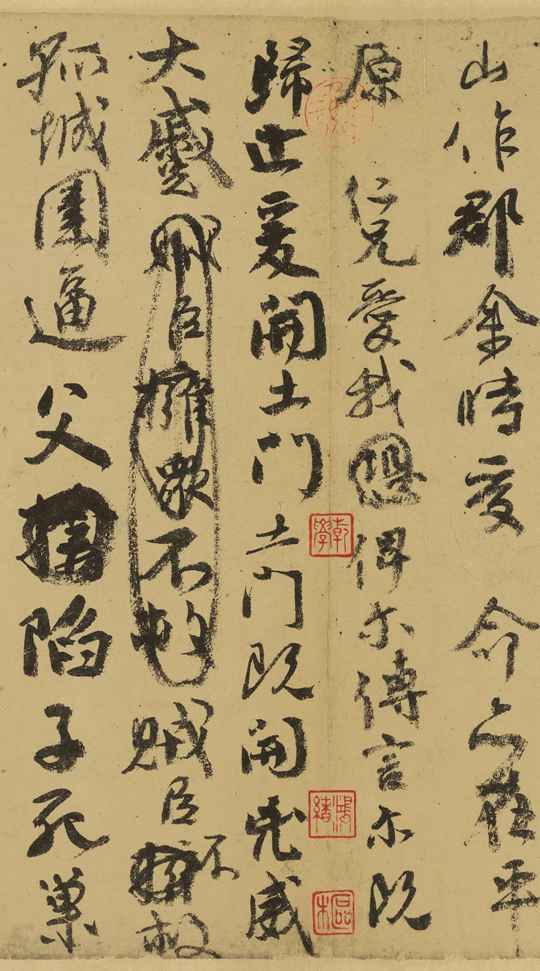 山作郡余時受 命亦在平
原 仁兄愛我俾尔傳言尔既
歸止爰開土門土門既開凶威
大蹙賊臣擁衆不救賊臣不救
孤城圍逼父陷子死巢
乾學